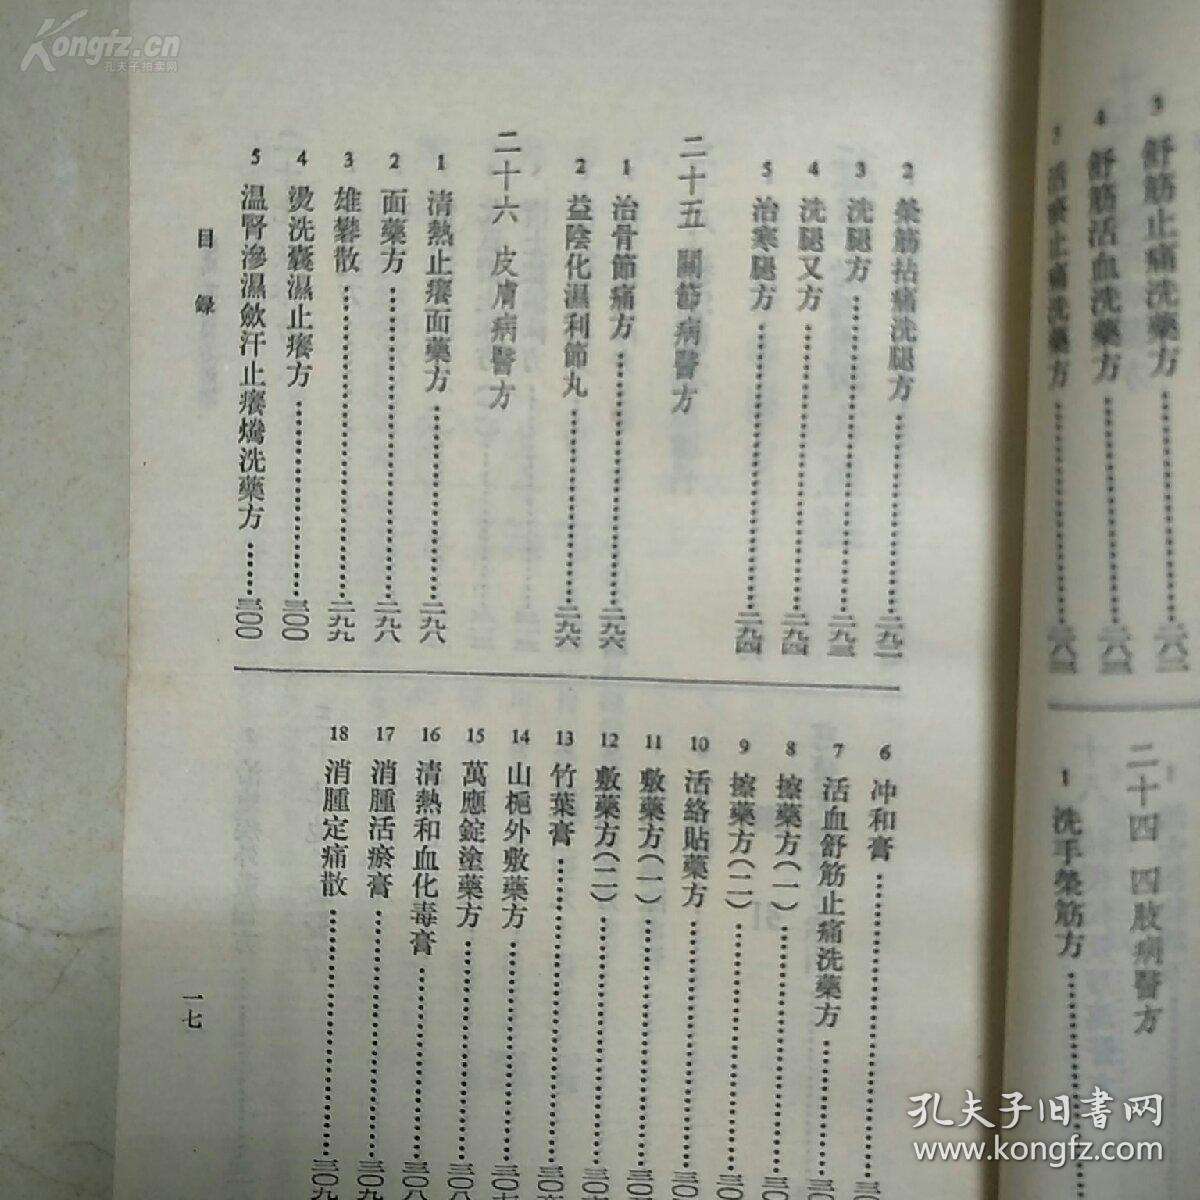 Kongfz.cn
孔夫子拍卖网
3 舒筋止痛洗藥方
4 舒筋活血洗藥方
活瘀止痛洗藥方
二十四 四肢病醫方
1 洗手榮筋方
2 榮筋拈痛洗腿方……二九二
3 洗腿方……二九三
4 洗腿又方……二九四
5 治寒腿方……二九四
二十五 關節病醫方
1 治骨節痛方……二九六
2 益陰化濕利節丸……二九六
二十六 皮膚病醫方
1 清熱止癢面藥方……二九八
2 面藥方……二九八
3 雄礬散……二九九
4 燙洗囊濕止癢方……三〇〇
5 溫腎滲濕斂汗止癢燙洗藥方……三〇〇
6 冲和膏
7 活血舒筋止痛洗藥方
8 擦藥方(一)
9 擦藥方(二)
10 活絡貼藥方
11 敷藥方(一)
12 敷藥方(二)
13 竹葉膏
14 山梔外敷藥方
15 萬應錠塗藥方
16 清熱和血化毒膏……三〇八
17 消腫活瘀膏……三〇九
18 消腫定痛散……三〇九
目錄
一七
孔夫子旧书网
www.kongfz.com